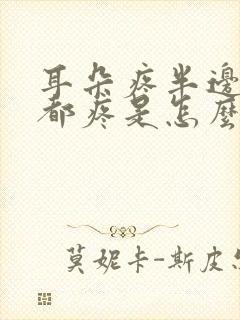 耳朵疼半邊
都疼是怎麼
莫妮卡-斯皮